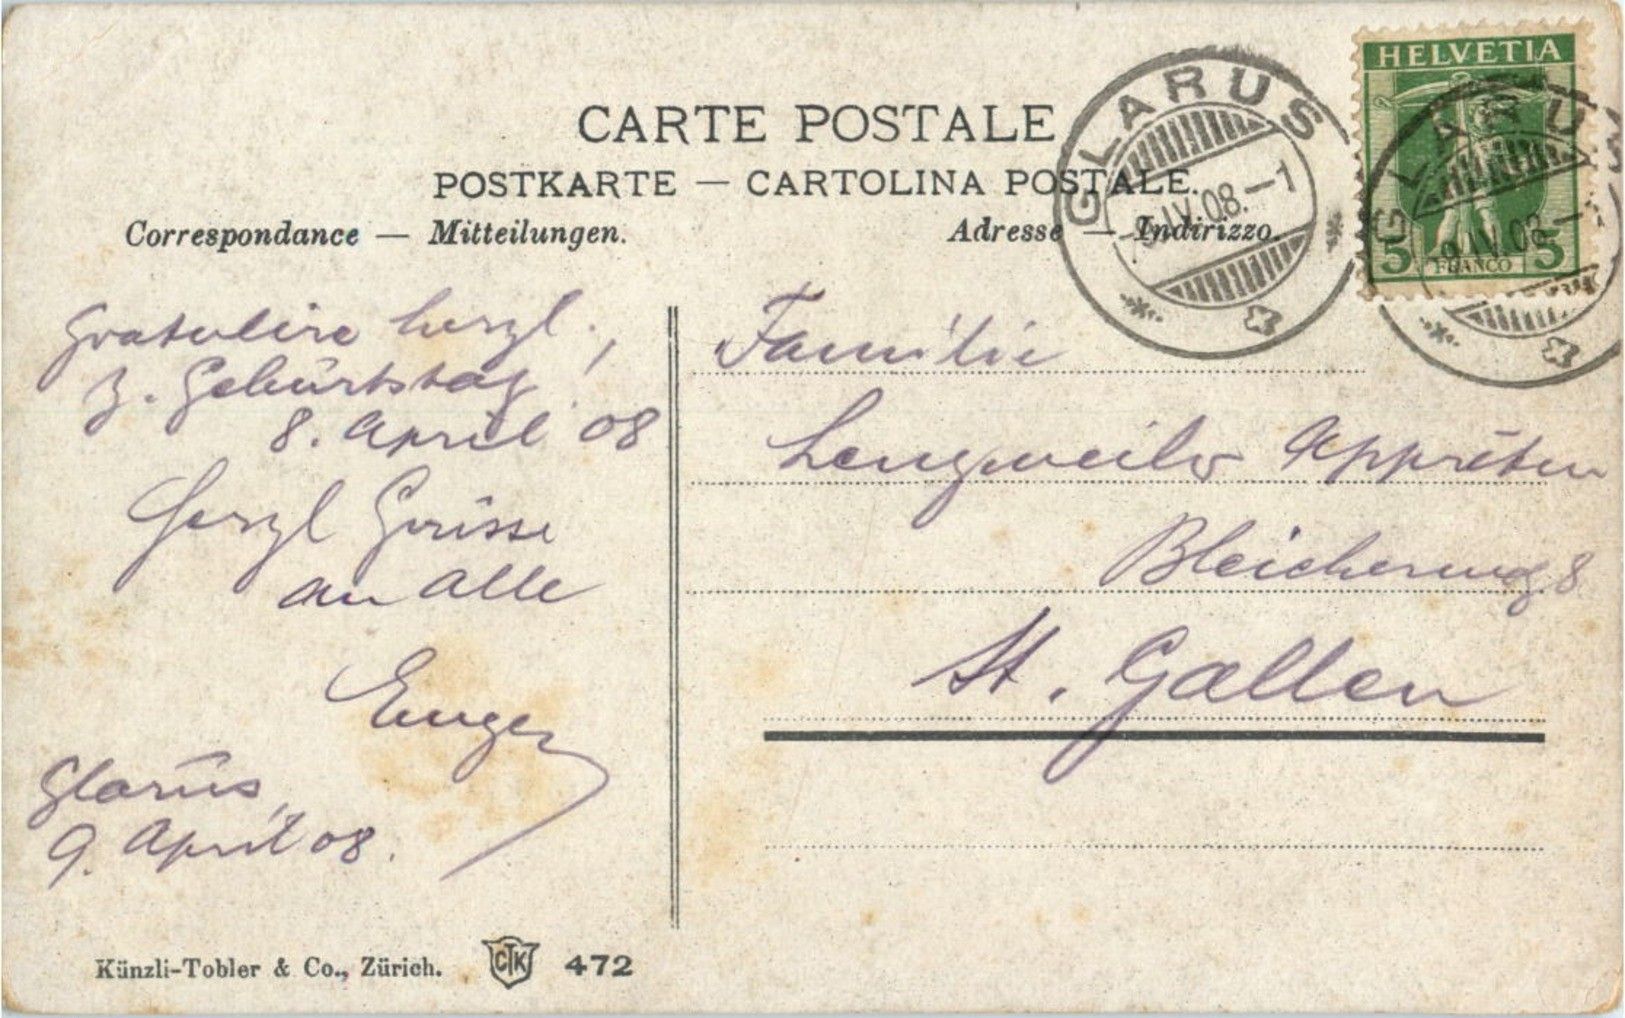 CARTE POSTALE
POSTKARTE — CARTOLINA POSTALE.
Correspondance — Mitteilungen.
Adresse — Indirizzo.
GLARUS
9.IV.08.–1
HELVETIA
5 FRANCO 5
GLARUS
9.IV.08.–
Gratuliere herzl.
z. Geburtstag!
8. April 08
Herzl Grüsse
an alle
Eugen
Glarus,
9. April 08.
Familie
Lengweiler Appretur
Bleicherweg 8
St. Gallen
Künzli-Tobler & Co., Zürich. CTK 472